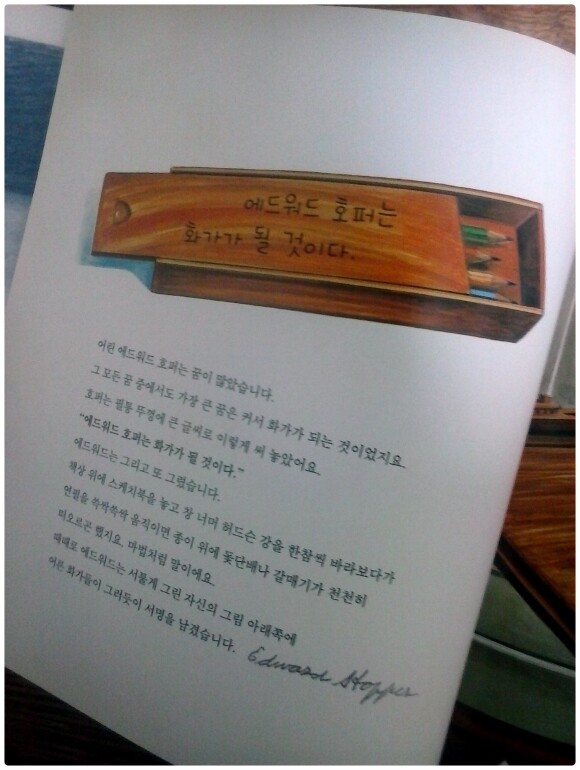 에드워드 호퍼는
화가가 될 것이다.
어린 에드워드 호퍼는 꿈이 많았습니다.
그 모든 꿈 중에서도 가장 큰 꿈은 커서 화가가 되는 것이었지요.
호퍼는 필통 뚜껑에 큰 글씨로 이렇게 써 놓았어요.
"에드워드 호퍼는 화가가 될 것이다."
에드워드는 그리고 또 그렸습니다.
책상 위에 스케치북을 놓고 창 너머 허드슨 강을 한참씩 바라보다가
연필을 쓱싹쓱싹 움직이면 종이 위에 돛단배나 갈매기가 천천히
떠오르곤 했지요. 마법처럼 말이에요.
때때로 에드워드는 서툴게 그린 자신의 그림 아래쪽에
어른 화가들이 그러듯이 서명을 남겼습니다. Edward Hopper